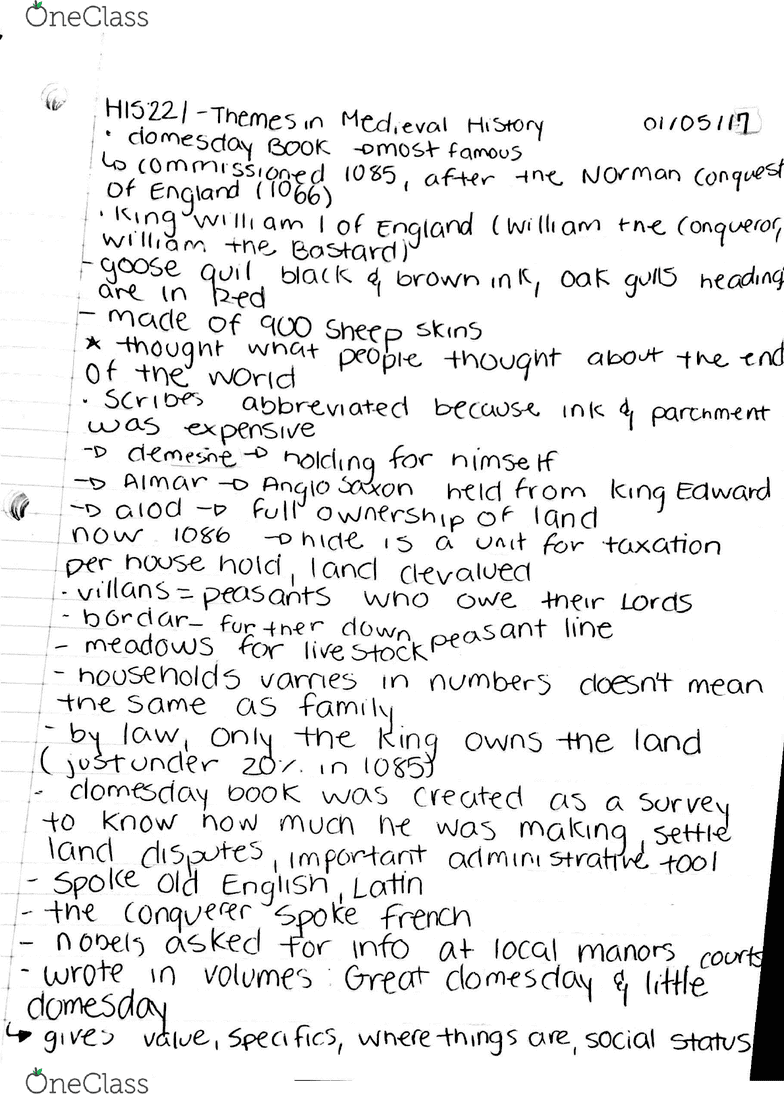 OneClass
HIS221 - Themes in Medieval History 01/05/17
· domesday Book → most famous
↳ commissioned 1085, after the Norman Conquest
of England (1066)
· King William I of England (William the Conqueror,
William the Bastard)
- goose quil black & brown ink, oak gulls heading
are in Red
- made of 900 sheep skins
* thought what people thought about the end
of the world
· Scribes abbreviated because ink & parchment
was expensive
→ demesne → holding for himself
→ Almar → Anglo Saxon held from King Edward
→ alod → full ownership of land
now 1086 → hide is a unit for taxation
per house hold, land devalued
· villans = peasants who owe their Lords
- bordar - further down peasant line
- meadows for livestock
- households varries in numbers doesn't mean
the same as family
- by law, only the King owns the land
(just under 20% in 1085)
- domesday book was created as a survey
to know how much he was making, settle
land disputes, important administrative tool
- Spoke Old English, Latin
- the conquerer spoke french
- nobels asked for info at local manors, courts
- wrote in volumes: Great domesday & little
domesday
↳ gives value, specifics, where things are, social status
OneClass